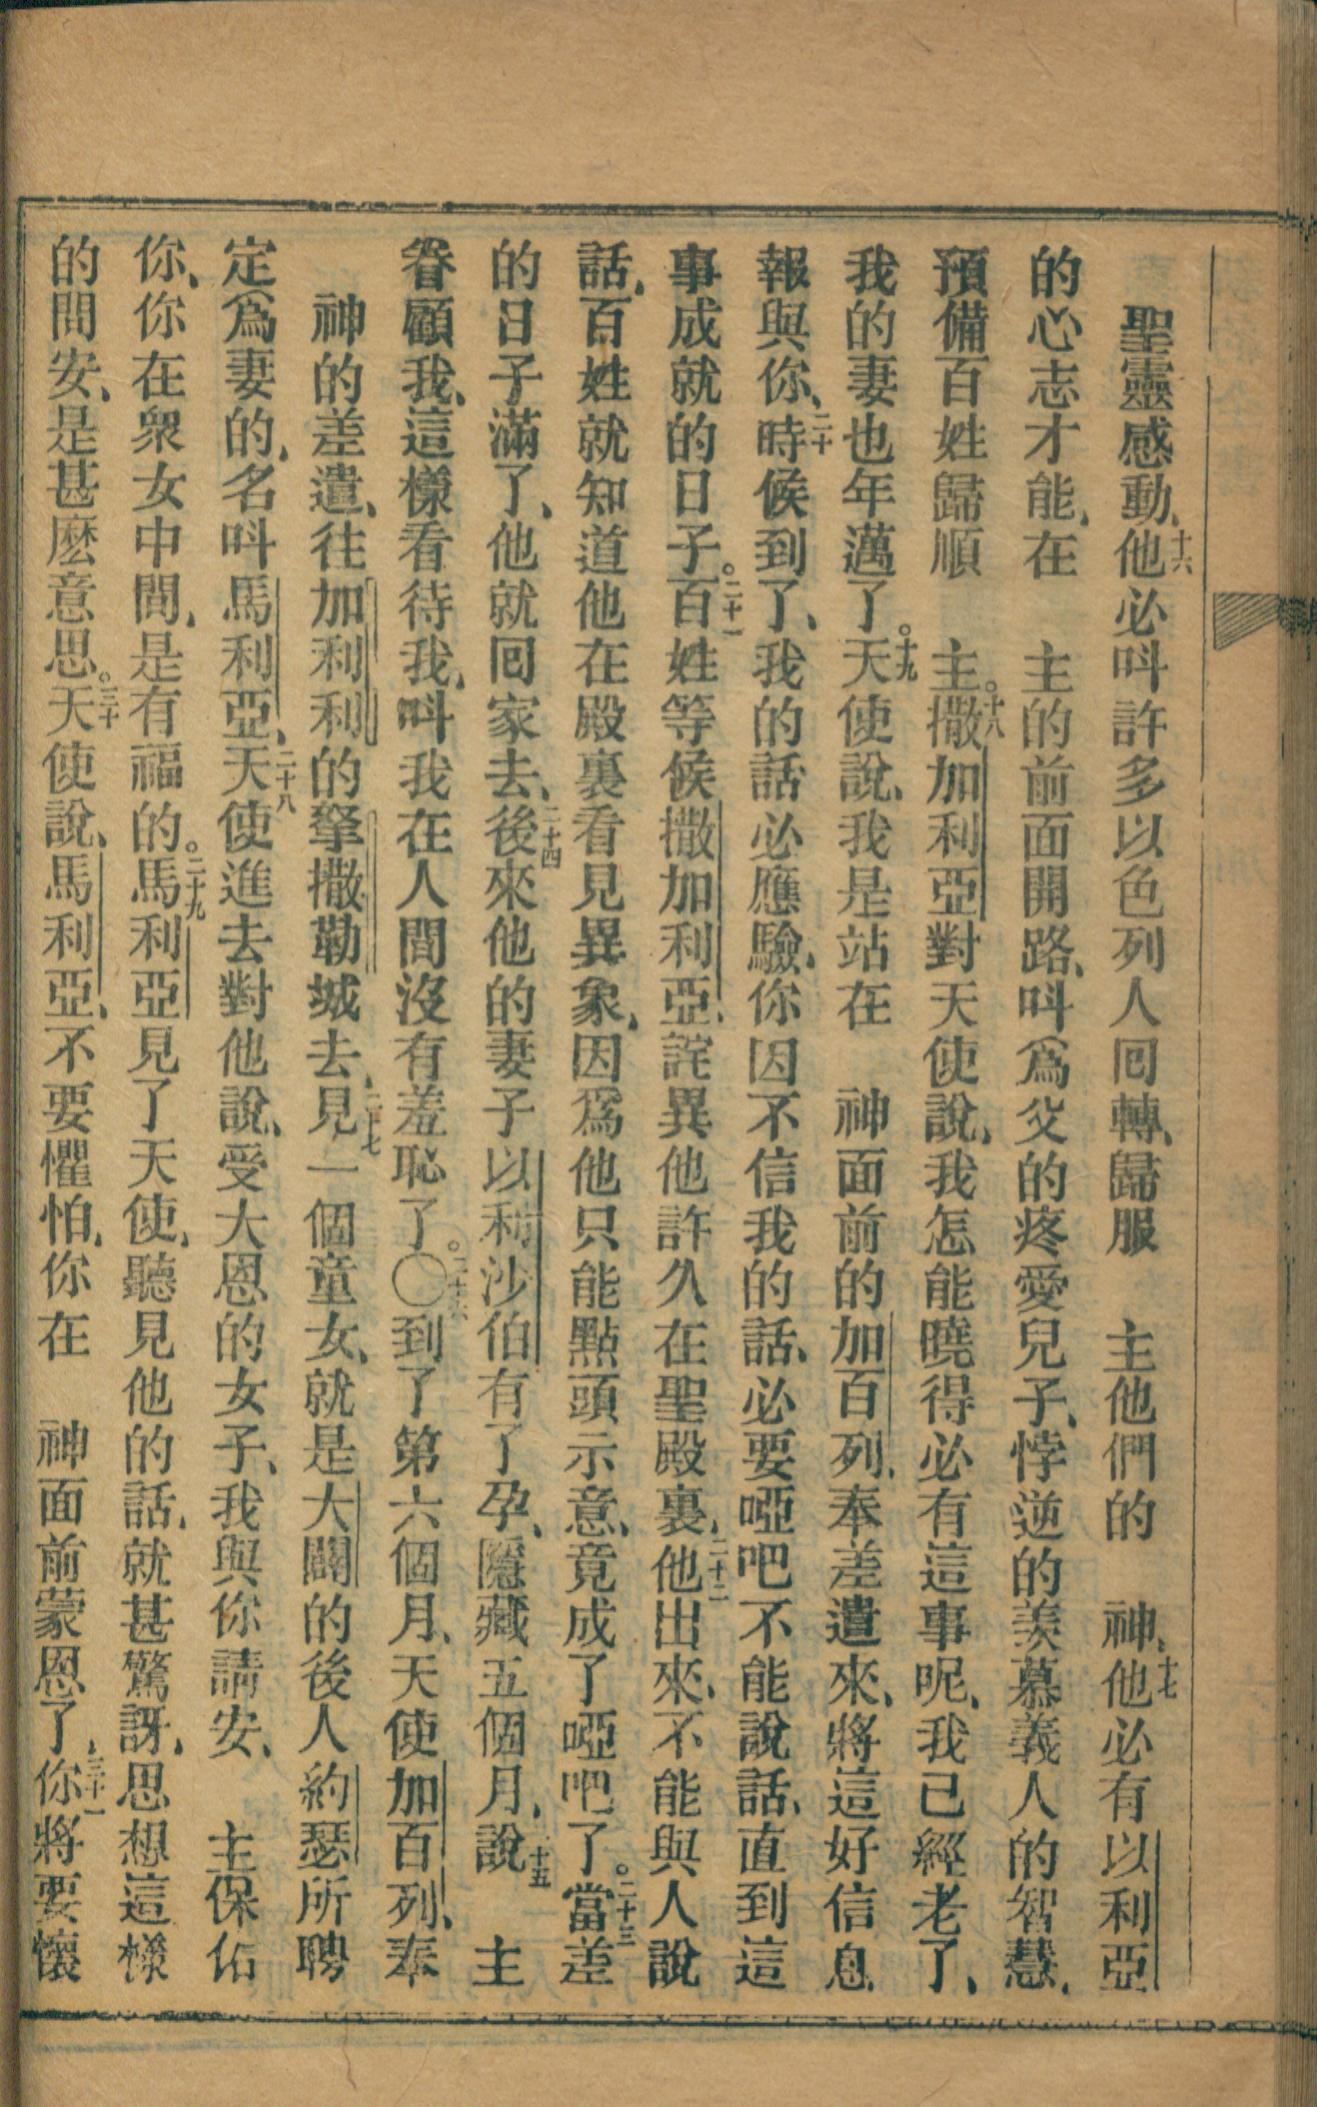 聖靈感動、十六他必呌許多以色列人囘轉、歸服　主他們的　神、十七他必有以利亞
的心志才能、在　主的前面開路、呌爲父的疼愛兒子、悖逆的羨慕義人的智慧、
預備百姓歸順　主。十八撒加利亞對天使說、我怎能曉得必有這事呢、我已經老了、
我的妻也年邁了。十九天使說、我是站在　神面前的加百列、奉差遣來、將這好信息
報與你、二十時候到了、我的話必應驗、你因不信我的話、必要啞吧不能說話、直到這
事成就的日子。二十一百姓等候撒加利亞、詫異他許久在聖殿裏、二十二他出來、不能與人說
話、百姓就知道他在殿裏看見異象、因爲他只能點頭示意、竟成了啞吧了。二十三當差
的日子滿了、他就囘家去、二十四後來他的妻子以利沙伯有了孕、隱藏五個月、說十五　主
眷顧我、這樣看待我、呌我在人間沒有羞恥了。〇二十六到了第六個月、天使加百列、奉
神的差遣、往加利利的拏撒勒城去、二十七見一個童女、就是大闢的後人約瑟所聘
定爲妻的、名呌馬利亞、二十八天使進去對他說、受大恩的女子、我與你請安、　主保佑
你、你在衆女中間、是有福的。二十九馬利亞見了天使、聽見他的話、就甚驚訝、思想這樣
的問安、是甚麽意思。三十天使說、馬利亞、不要懼怕、你在　神面前蒙恩了、三十一你將要懷